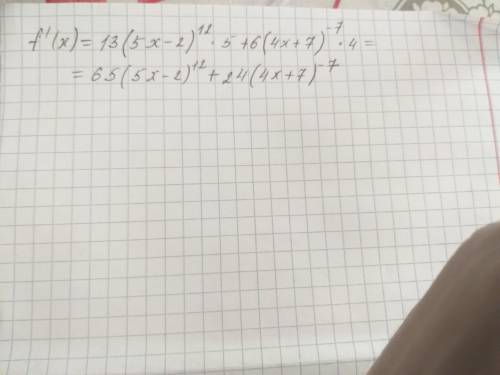 f'(x) = 13(5x-2)¹²·5+6(4x+7)⁻⁷·4=
= 65(5x-2)¹²+24(4x+7)⁻⁷